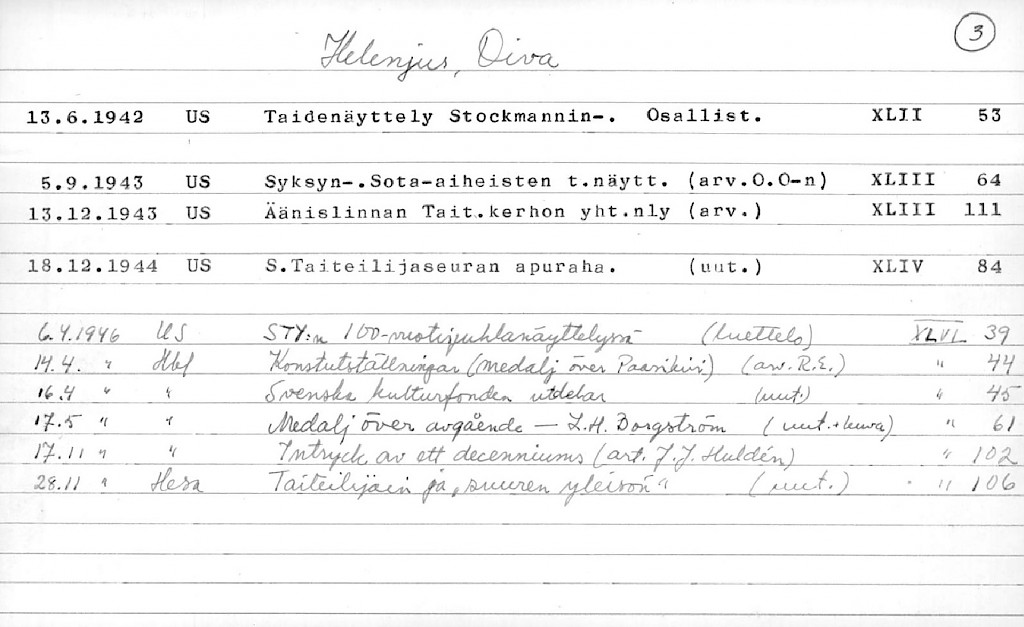 3
Helenjus, Oiva
13.6.1942 US Taidenäyttely Stockmannin-. Osallist. XLII 53
5.9.1943 US Syksyn-.Sota-aiheisten t.näytt. (arv.O.O-n) XLIII 64
13.12.1943 US Äänislinnan Tait.kerhon yht.nly (arv.) XLIII 111
18.12.1944 US S.Taiteilijaseuran apuraha. (uut.) XLIV 84
6.4.1946 US STY:n 100-vuotisjuhlanäyttelyssä (luettelo) XLVI 39
14.4. " Hbl Konstutställningar (medalj över Paasikivi) (arv. R.E.) " 44
16.4 " " Svenska kulturfonden utdelar (uut.) " 45
17.5 " " Medalj över avgående — L.H. Borgström (uut.+kuva) " 61
17.11 " " Intryck av ett decenniums (art. J.J. Huldén) " 102
28.11 " Hesa Taiteilijain ja "suuren yleisön" (uut.) " 106